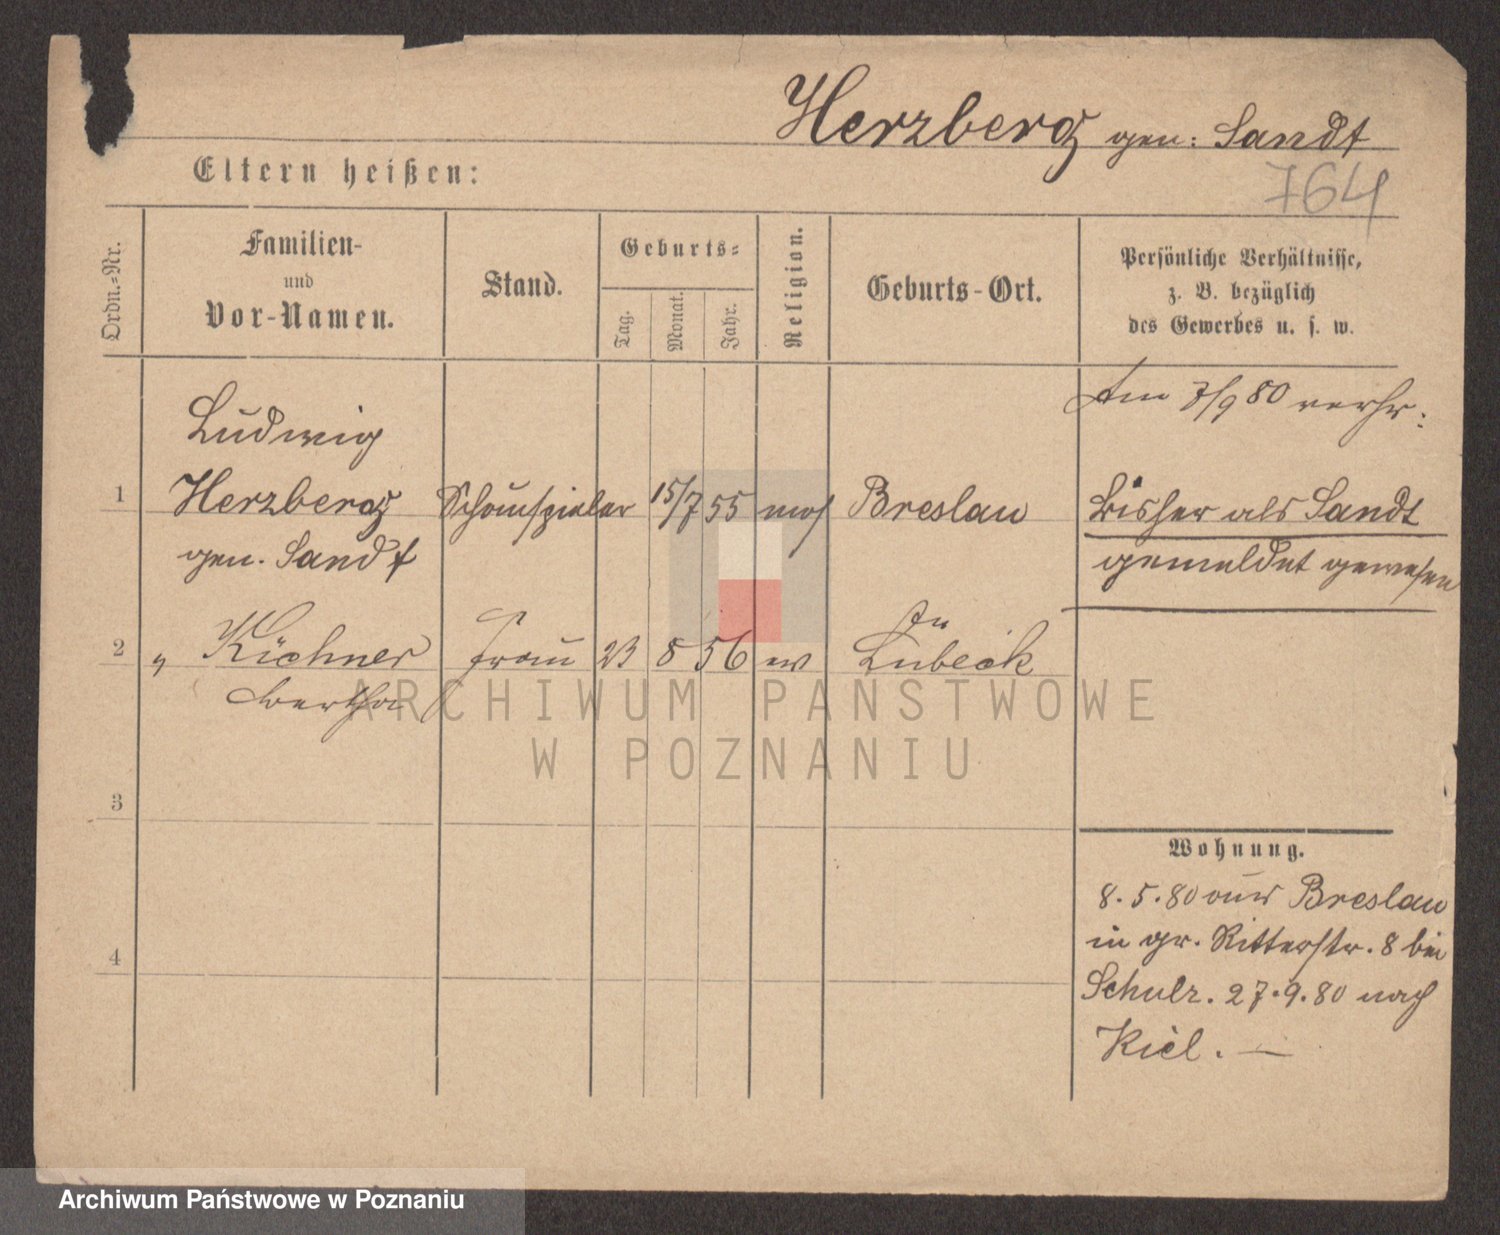 Herzberg gen: Sandt
764
Eltern heißen:
Ordn.-Nr.
Familien-
und
Vor-Namen.
Stand.
Geburts-
Tag.
Monat.
Jahr.
Religion.
Geburts-Ort.
Persönliche Verhältnisse,
z. B. bezüglich
des Gewerbes u. s. w.
Am 7/9 80 verhr:
Ludwig
1 Herzberg Schauspieler 15/7 55 mos Breslau bisher als Sandt
gen. Sandt
gemeldet gewesen
2 " Kirchner Frau 23 8 56 ev Lübeck
Bertha
3
Wohnung.
8.5.80 aus Breslau
in gr. Ritterstr. 8 bei
4
Schulz. 27.9.80 nach
Kiel. —
ARCHIWUM PAŃSTWOWE
W POZNANIU
Archiwum Państwowe w Poznaniu